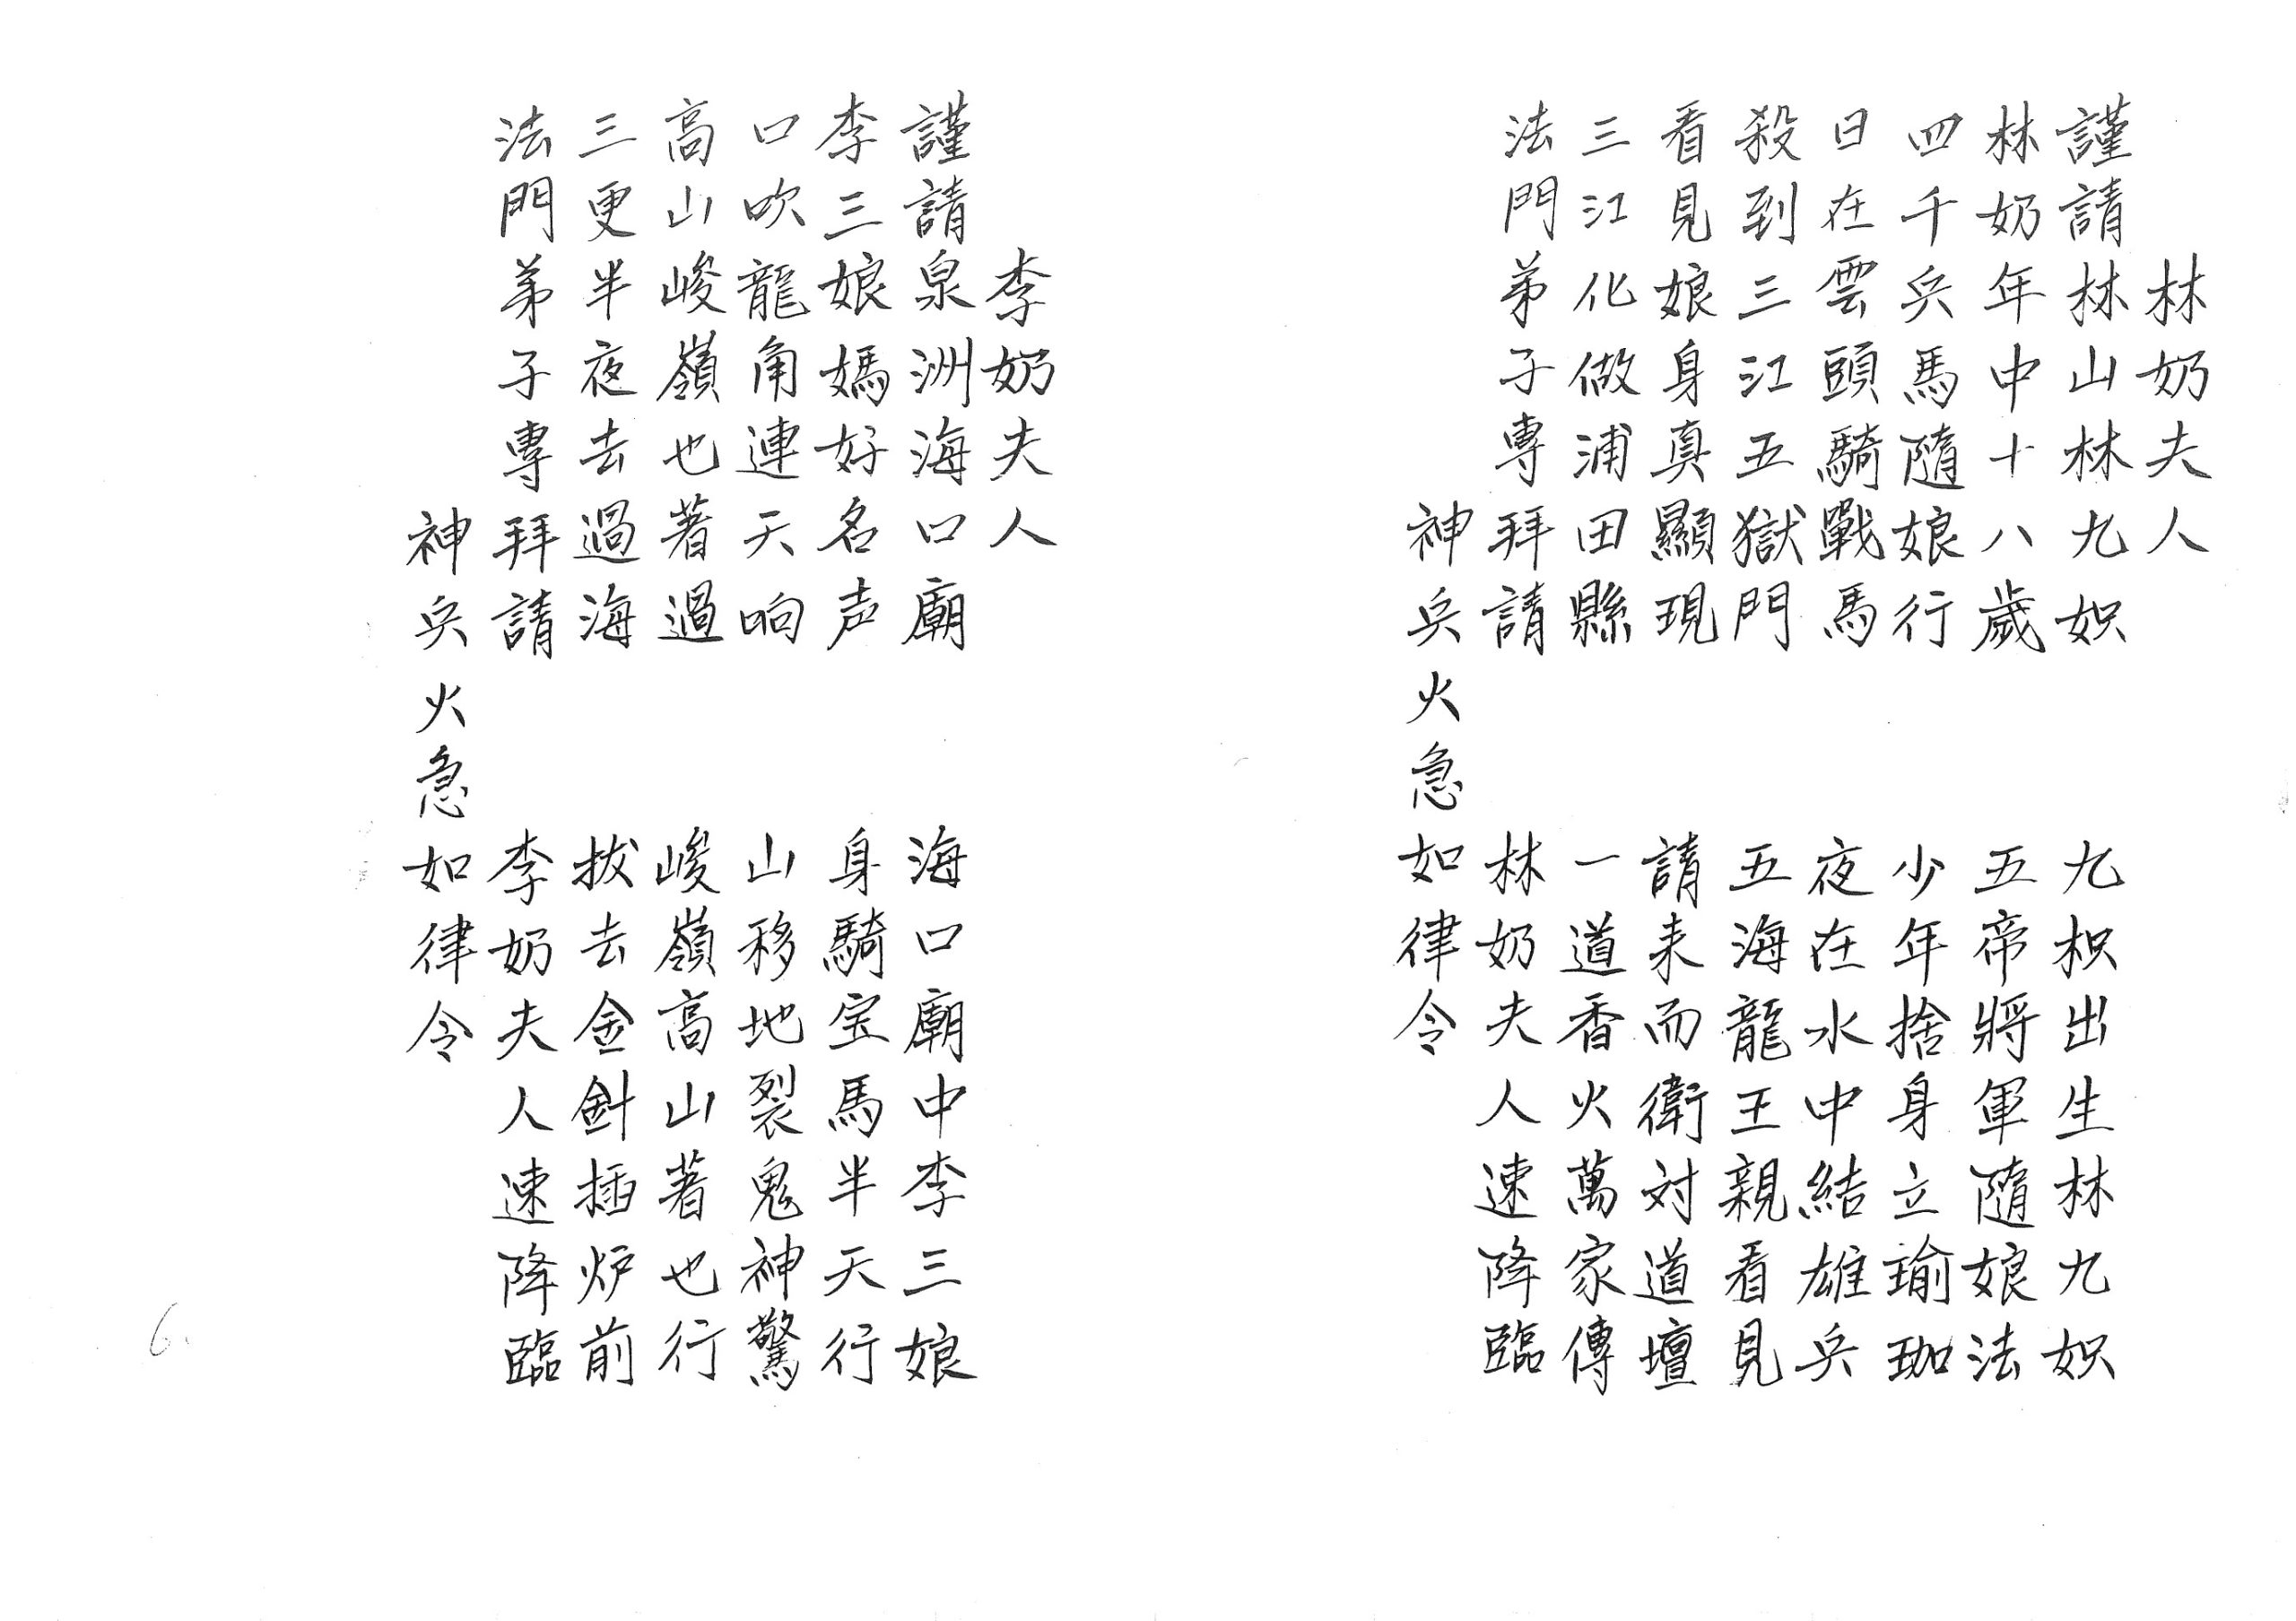 林奶夫人
謹請林山林九娘 九枳出生林九娘
林奶年中十八歲 五帝將軍隨娘法
四千兵馬隨娘行 少年捨身立瑜珈
日在雲頭騎戰馬 夜在水中結雄兵
殺到三江五獄門 五海龍王親看見
看見娘身真顯現 請来而衛対道壇
三江化做浦田縣 一道香火萬家傳
法門弟子專拜請 林奶夫人速降臨
神兵火急如律令
李奶夫人
謹請泉洲海口廟 海口廟中李三娘
李三娘媽好名声 身騎宝馬半天行
口吹龍角連天响 山移地裂鬼神驚
高山峻嶺也著過 峻嶺高山著也行
三更半夜去過海 拔去金針插炉前
法門弟子專拜請 李奶夫人速降臨
神兵火急如律令
6.